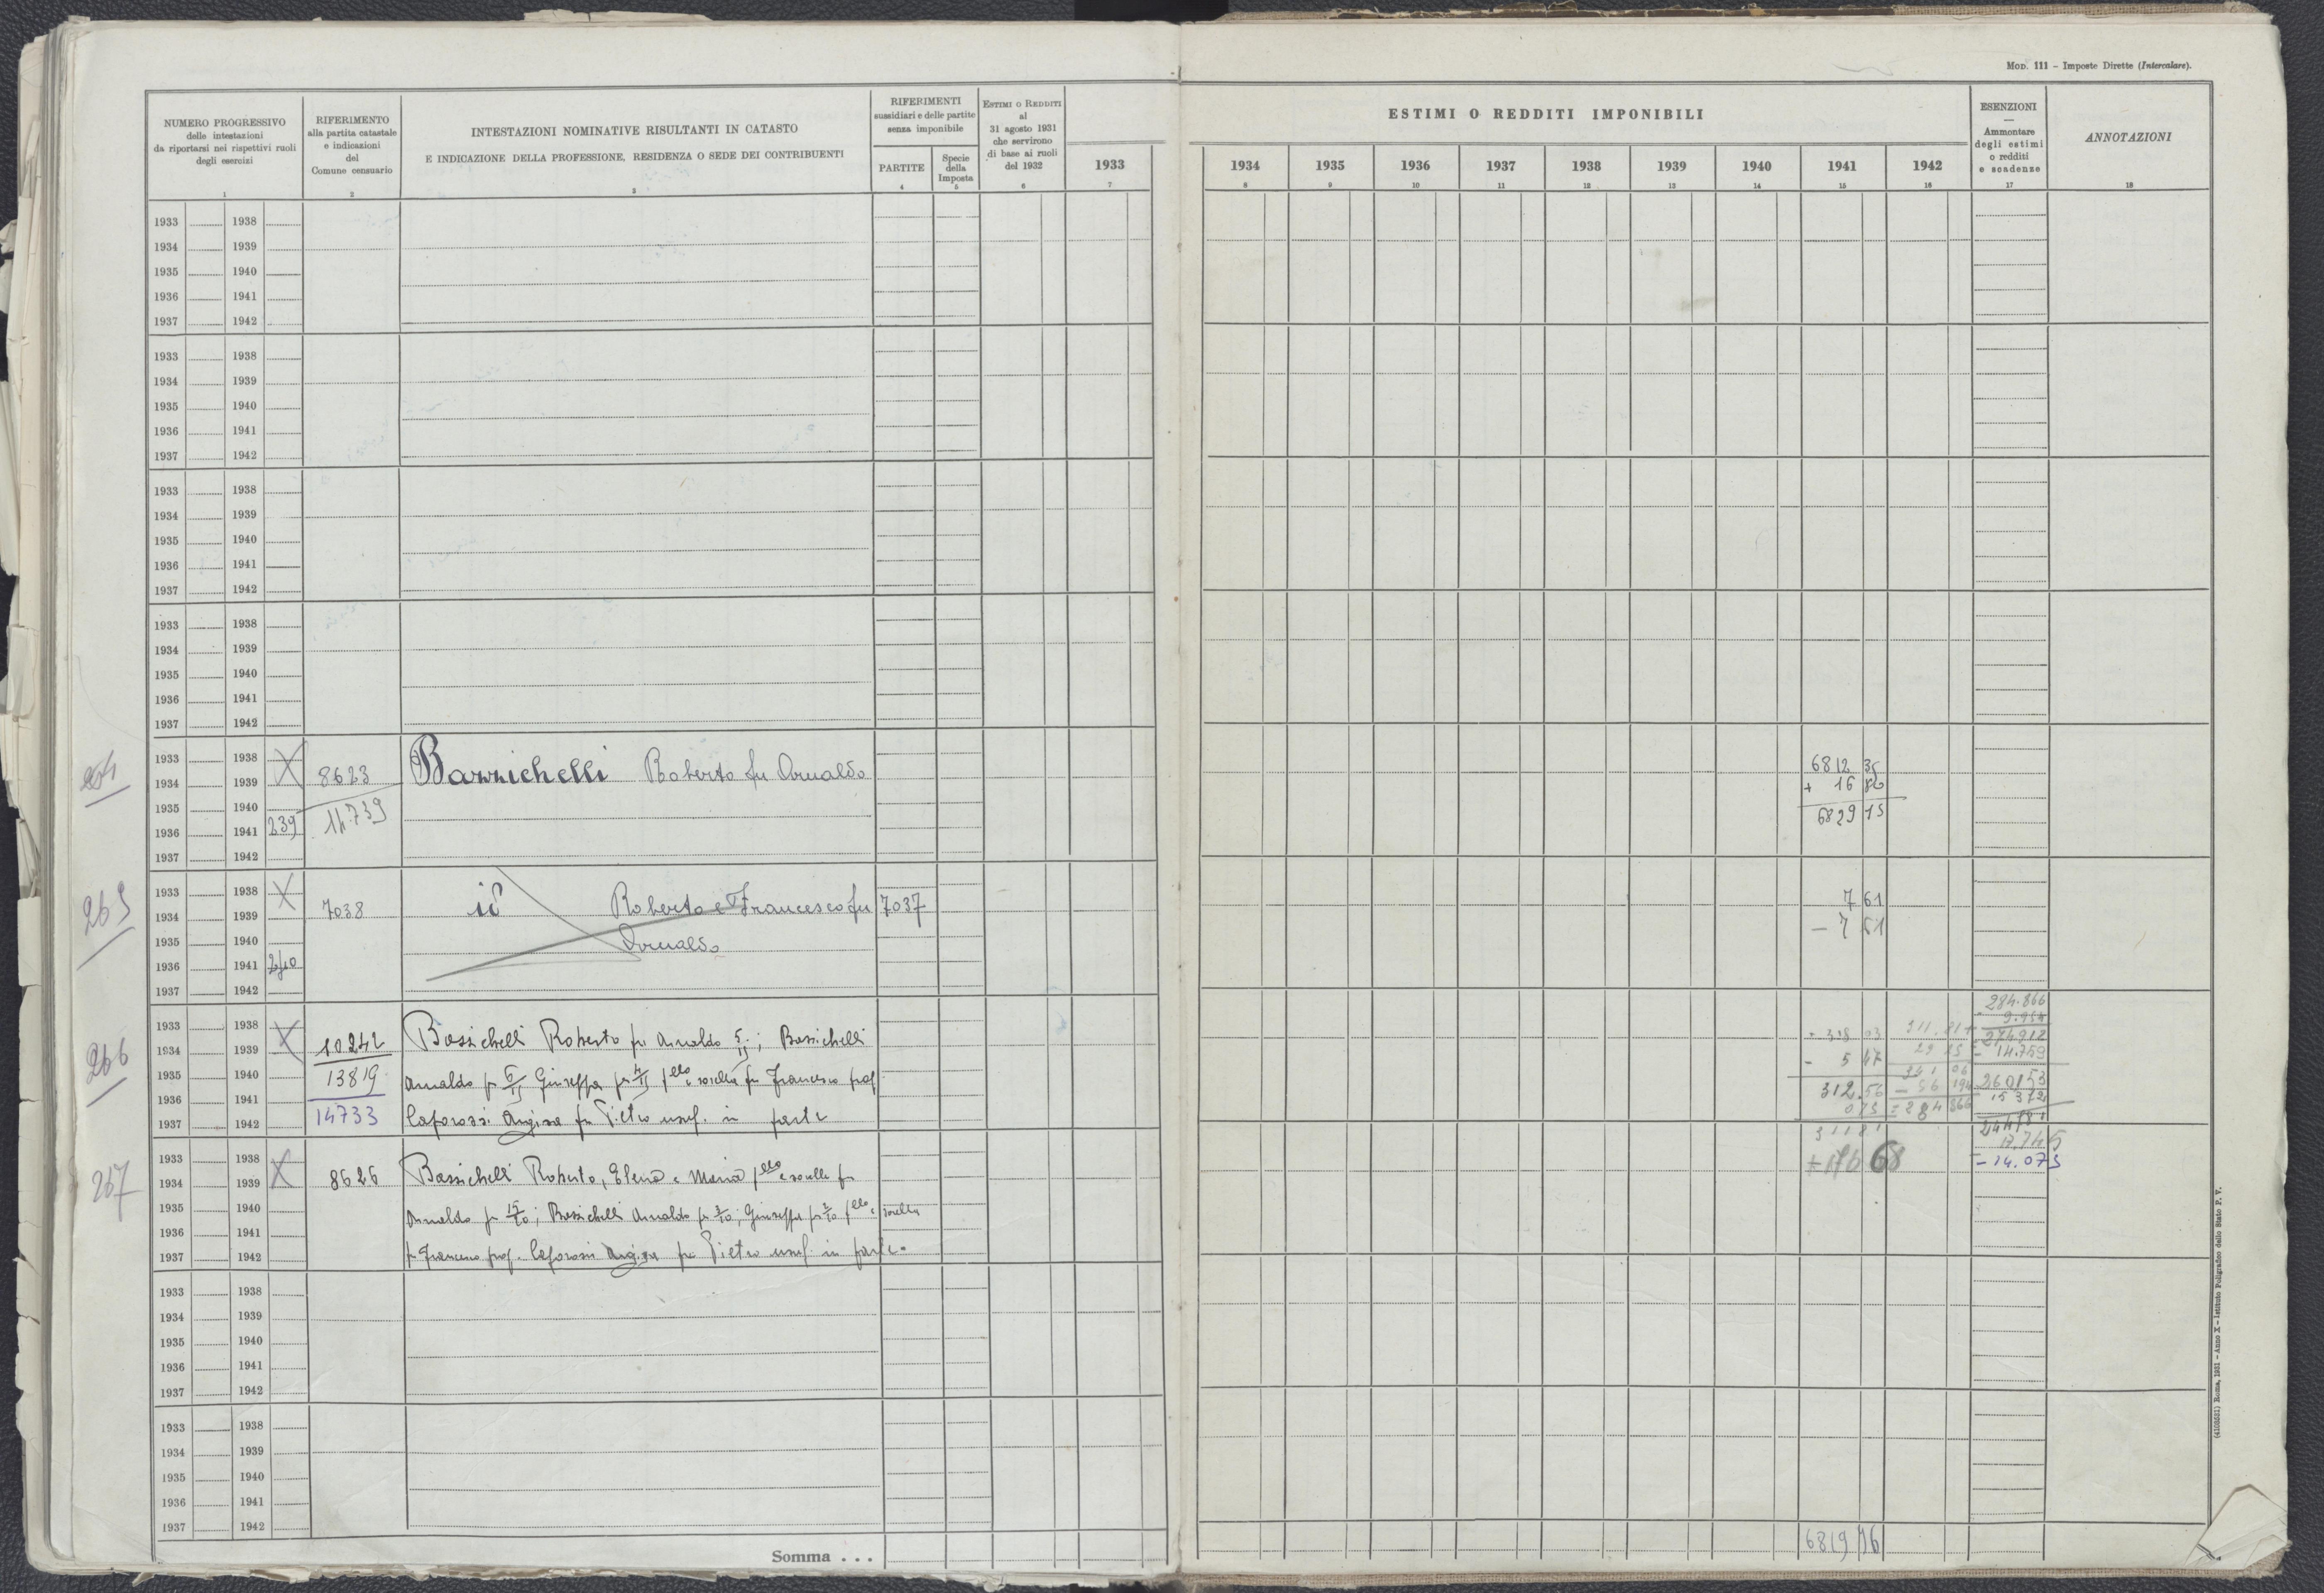 MOD. 111 – Imposte Dirette (Intercalare).
NUMERO PROGRESSIVO
delle intestazioni
da riportarsi nei rispettivi ruoli
degli esercizi
1
RIFERIMENTO
alla partita catastale
e indicazioni
del
Comune censuario
2
INTESTAZIONI NOMINATIVE RISULTANTI IN CATASTO
E INDICAZIONE DELLA PROFESSIONE, RESIDENZA O SEDE DEI CONTRIBUENTI
3
RIFERIMENTI
sussidiari e delle partite
senza imponibile
PARTITE
4
Specie
della
Imposta
5
ESTIMI O REDDITI
al
31 agosto 1931
che servirono
di base ai ruoli
del 1932
6
1933
7
ESTIMI O REDDITI IMPONIBILI
1934 1935 1936 1937 1938 1939 1940 1941 1942
8 9 10 11 12 13 14 15 16
ESENZIONI
—
Ammontare
degli estimi
o redditi
e scadenze
17
ANNOTAZIONI
18
1933 1938
1934 1939
1935 1940
1936 1941
1937 1942
1933 1938
1934 1939
1935 1940
1936 1941
1937 1942
1933 1938
1934 1939
1935 1940
1936 1941
1937 1942
1933 1938
1934 1939
1935 1940
1936 1941
1937 1942
1933 1938
1934 1939 8623 Roberto fu Arnaldo 6812 35
1935 1940 14.739 + 16 80
1936 1941 239 6829 15
1937 1942
265
1933 1938
1934 1939 7038 Roberto e Francesco fu 7037 7 61
1935 1940 Arnaldo – 7 61
1936 1941 240
1937 1942
266
284.866
1933 1938
1934 1939 10242 Roberto fu Arnaldo 274912
1935 1940 13819 Arnaldo Giuseppa fu Francesco prop – 5 47 – 14.759
1936 1941 312.56 260153
1937 1942 14733 fu Pietro usuf. in parte = 284 866
267
1933 1938 311 81
1934 1939 8626 Roberto, Elena e Maria – 14.073
1935 1940 Arnaldo Arnaldo Giuseppa sorella
1936 1941
1937 1942 fu Francesco prop. fu Pietro usuf. in parte.
1933 1938
1934 1939
1935 1940
1936 1941
1937 1942
1933 1938
1934 1939
1935 1940
1936 1941
1937 1942
Somma . . . 6819 76
(4105581) Roma, 1931 – Anno X – Istituto Poligrafico dello Stato P. V.